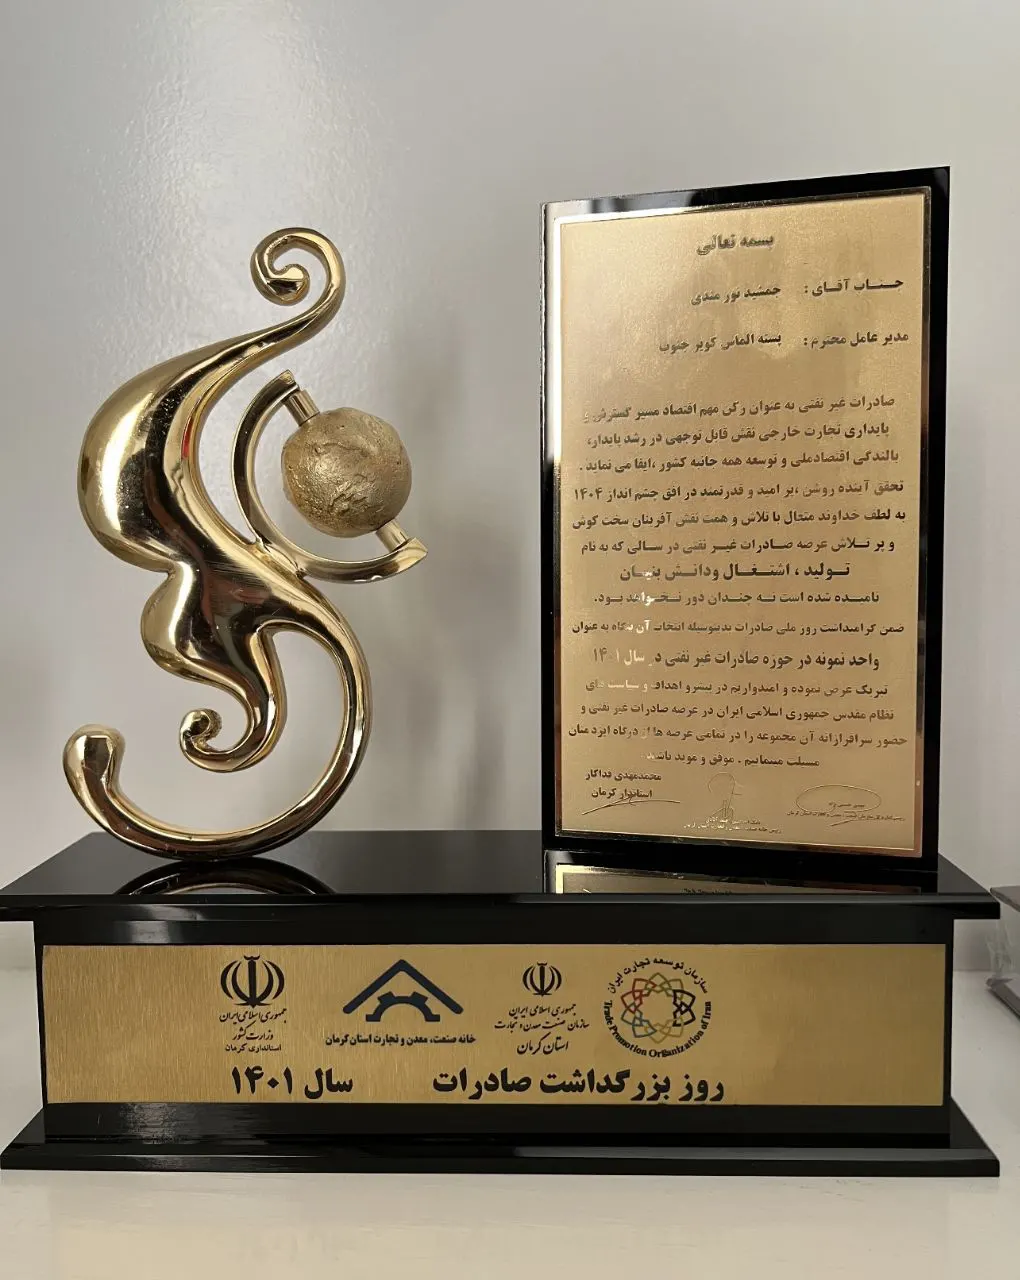 بسمه تعالی
جـنـاب آقـای : جمشید نور مندی
مدیر عامل محترم : پسته الماس کویر جنوب
صادرات غیر نفتی به عنوان رکن مهم اقتصاد مسیر گسترش و
پایداری تجارت خارجی نقش قابل توجهی در رشد پایدار،
بالندگی اقتصادملی و توسعه همه جانبه کشور ،ایفا می نماید .
تحقق آینده روشن ،پر امید و قدرتمند در افق چشم انداز ۱۴۰۴
به لطف خداوند متعال با تلاش و همت نقش آفرینان سخت کوش
و پر تـلاش عرصه صـادرات غیـر نفتی در سـالی که به نام
تـولید ، اشتـغـال ودانـش بنیـان
نامیـده شده است نـه چندان دور نـخـواهد بـود.
ضمن گرامیداشت روز ملی صادرات بدینوسیله انتخاب آن بنگاه به عنوان
واحد نمونه در حوزه صادرات غیر نفتی در سال ۱۴۰۱
تبریک عرض نموده و امیدواریم در پیشبرد اهداف و سیاست های
نظام مقدس جمهوری اسلامی ایران در عرصه صادرات غیر نفتی و
حضور سرافرازانه آن مجموعه را در تمامی عرصه ها از درگاه ایزد منان
مسئلت مینماییم . موفق و موید باشید
محمدمهدی فداکار
استاندار کرمان
جمهوری اسلامی ایران
وزارت کشور
استانداری کرمان
خانه صنعت، معدن و تجارت استان کرمان
جمهوری اسلامی ایران
سازمان صنعت معدن و تجارت
استان کرمان
سازمان توسعه تجارت ایران
Trade Promotion Organization of Iran
روز بزرگداشت صادرات سال ۱۴۰۱